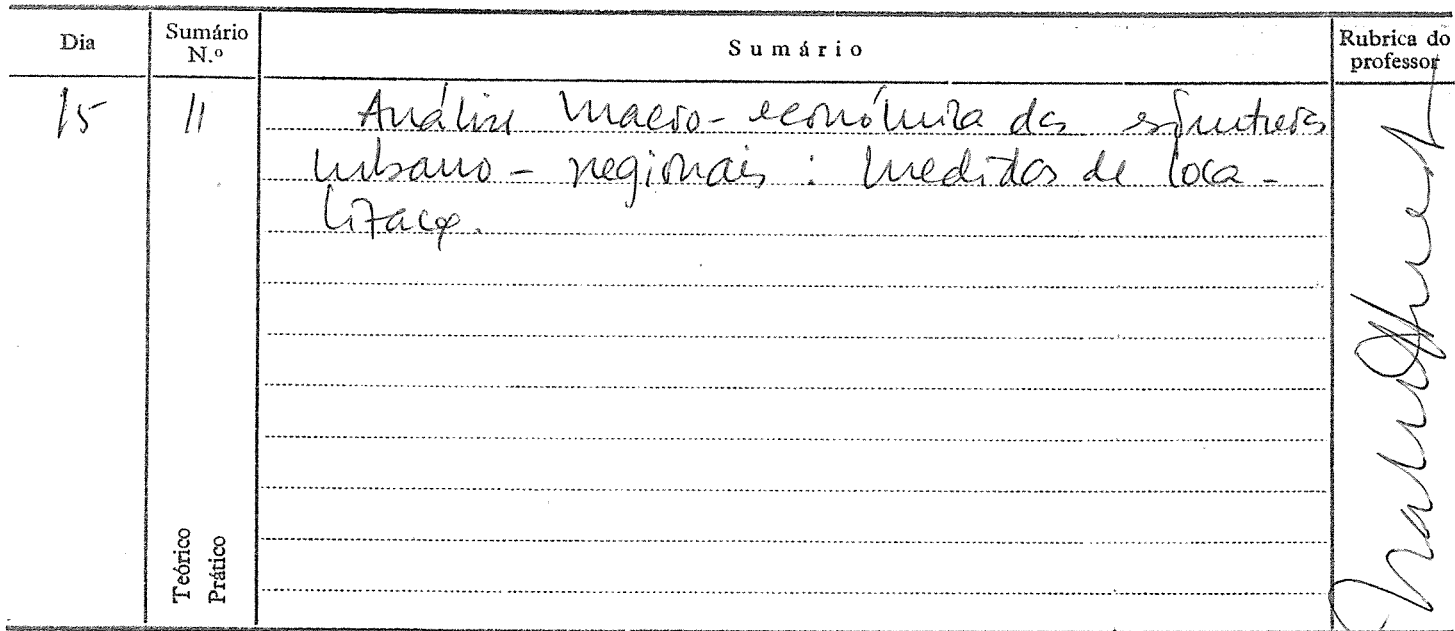 Dia
Sumário N.º
Sumário
Rubrica do professor
15
11
Análise macro-económica das estruturas
urbano-regionais: medidas de loca-
lização.
Teórico
Prático